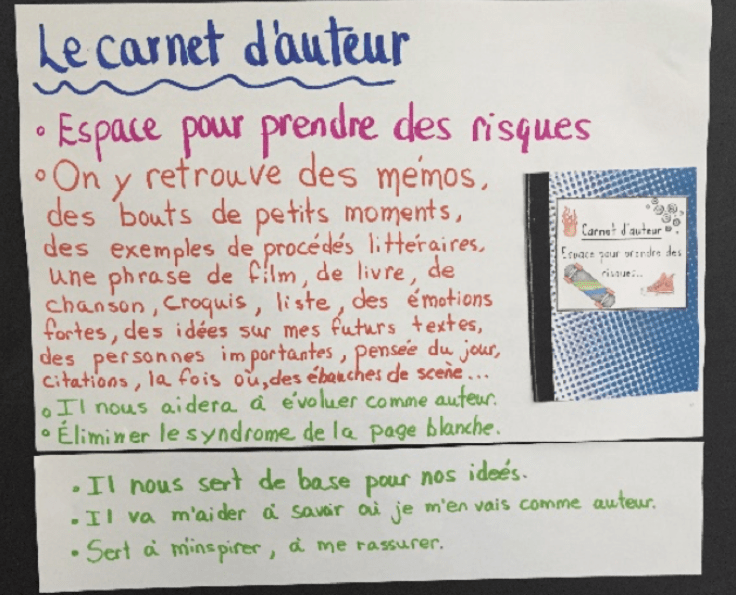 Le carnet d'auteur
• Espace pour prendre des risques
• On y retrouve des mémos,
des bouts de petits moments,
des exemples de procédés littéraires,
une phrase de film, de livre, de
chanson, croquis, liste, des émotions
fortes, des idées sur mes futurs textes,
des personnes importantes, pensée du jour,
citations, la fois où, des ébauches de scène...
• Il nous aidera à évoluer comme auteur.
• Éliminer le syndrome de la page blanche.
Carnet d'auteur
Espace pour prendre des
risques...
• Il nous sert de base pour nos ideés.
• Il va m'aider à savoir où je m'en vais comme auteur.
• Sert à m'inspirer, à me rassurer.